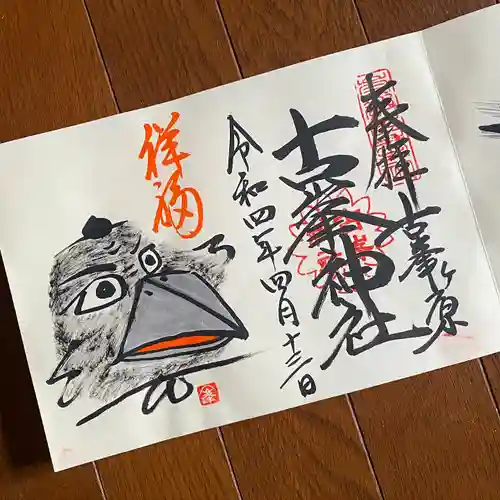 奉拝
古峯ヶ原
古峯神社
令和四年四月十三日
祥福